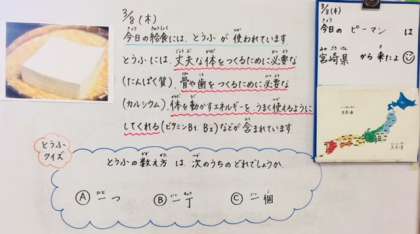 3/8(木)
今日の給食には、とうふが 使われています
とうふには、丈夫な体をつくるために必要な
(たんぱく質)、骨や歯をつくるために必要な
(カルシウム)、体を動かすエネルギーをうまく使えるように
してくれる(ビタミンB1、B2)などが 含まれています
とうふ
クイズ
とうふの数え方 は 次のうちのどれでしょうか
Ⓐ 一つ Ⓑ 一丁 Ⓒ 一個
3/8(木)
今日の ピーマン は
宮崎県 から来たよ